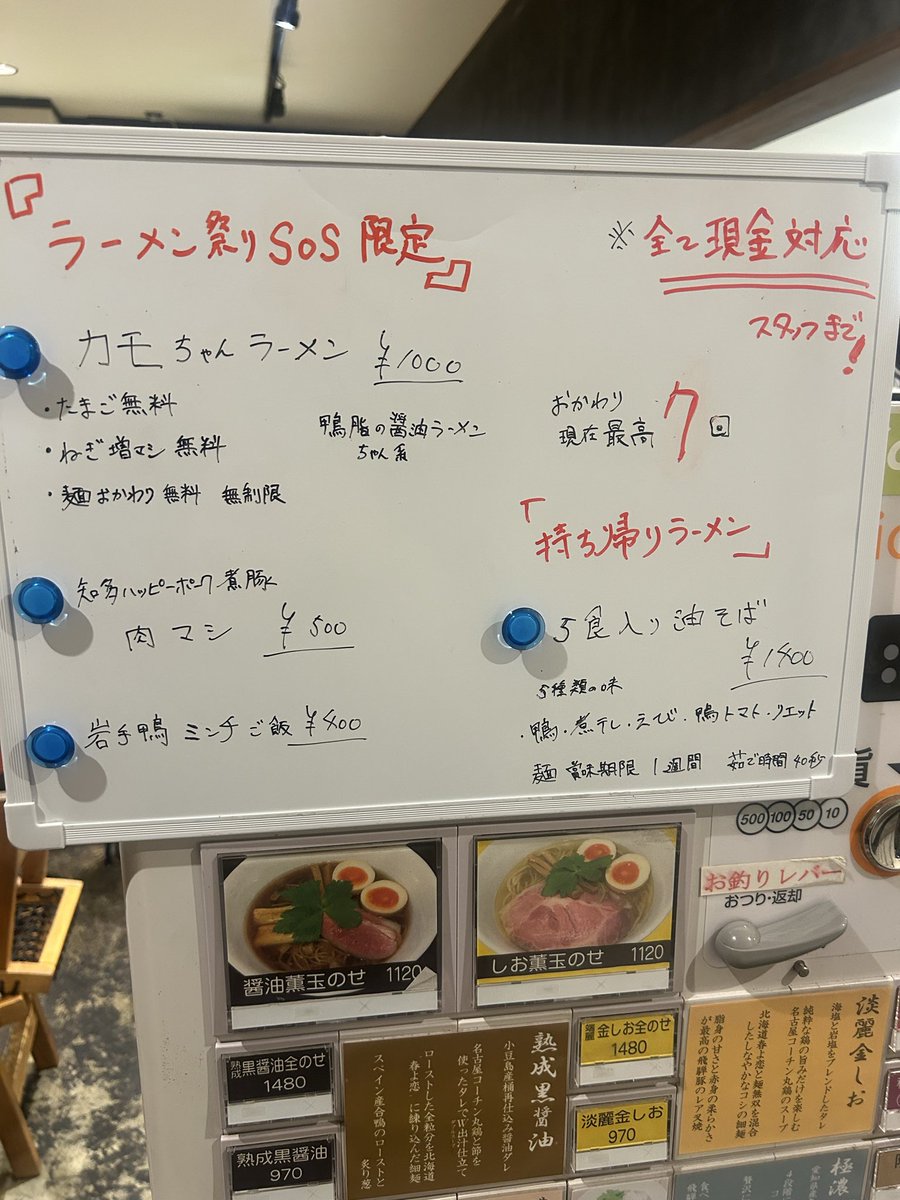 『ラーメン祭りSOS限定』
※全て現金対応
スタッフまで！
カモちゃんラーメン ¥1000
・たまご無料
・ねぎ増マシ無料
・麺おかわり無料 無制限
鴨脂の醤油ラーメン
ちゃん系
おかわり
現在最高 7回
知多ハッピーポーク煮豚
肉マシ ¥500
岩手鴨ミンチご飯 ¥400
「持ち帰りラーメン」
5食入り油そば
¥1400
5種類の味
・鴨・煮干し・えび・鴨トマト・リエット
麺 賞味期限 1週間 茹で時間40秒
500 100 50 10
お釣りレバー
おつり・返却
醤油薫玉のせ 1120
しお薫玉のせ 1120
熟成黒醤油全のせ
1480
熟成黒醤油
970
熟成黒醤油
小豆島産桶再仕込み醤油ダレ
名古屋コーチン丸鶏と節を
使ったタレでW出汁仕立て
ローストした全粒分を北海道
春よ恋 に練り込んだ細麺
スペイン産合鴨のローストと
炙り葱
金しお全のせ
1480
淡麗金しお
970
淡麗金しお
海塩と岩塩をブレンドしたタレ
純粋な鶏の旨みだけを楽しむ
名古屋コーチン丸鶏のスープ
北海道春よ恋と麺無双を混合
したしなやかなコシの細麺
脂身の甘さと赤身の柔らかさ
が最高の飛騨豚のレアな焼
極濃